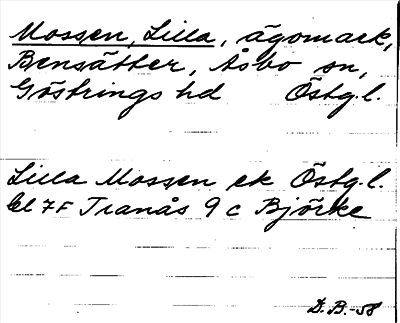 Mossen, Lilla, ägomark,
Bensätter, Åsbo sn,
Göstrings hd Östg.l.
Lilla Mossen ek Östg.l.
bl 7F Tranås 9 c Björke
D.B.-58